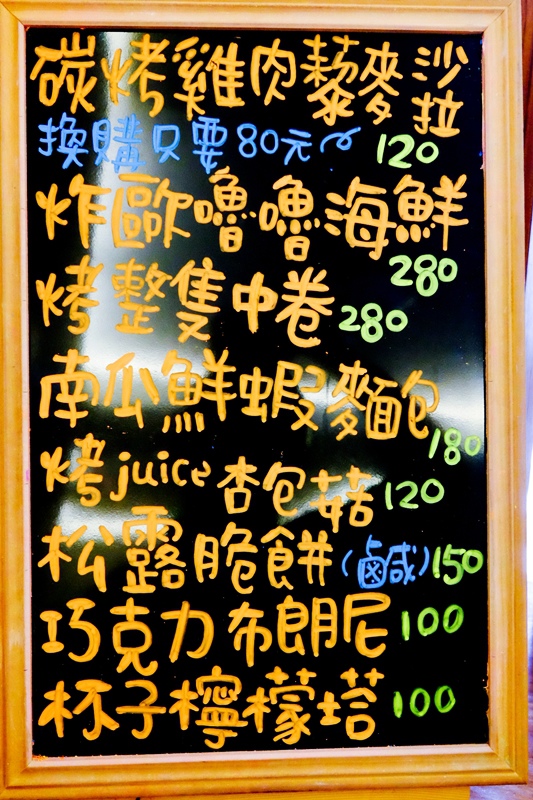 碳烤雞肉藜麥沙拉
換購只要80元 120
炸歐嚕嚕海鮮
280
烤整隻中卷 280
南瓜鮮蝦麵包
180
烤juice杏包菇 120
松露脆餅(鹹鹹)150
巧克力布朗尼 100
杯子檸檬塔 100